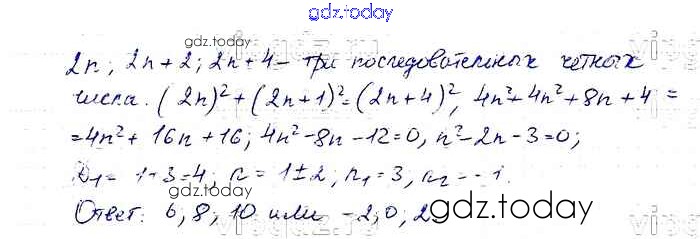 gdz.today
gdz.today
2n; 2n+2; 2n+4 - три последовательных четных
числа. (2n)²+(2n+1)²=(2n+4)², 4n²+4n²+8n+4=
=4n²+16n+16; 4n²-8n-12=0, n²-2n-3=0;
D₁= 1+3=4; n=1±2; n₁=3, n₂=-1.
gdz.today
Ответ: 6, 8, 10 или -2, 0, 2
gdz.today